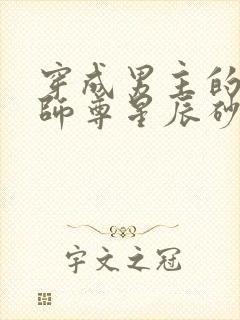 穿成男主的
師尊星辰砂
宇文之冠